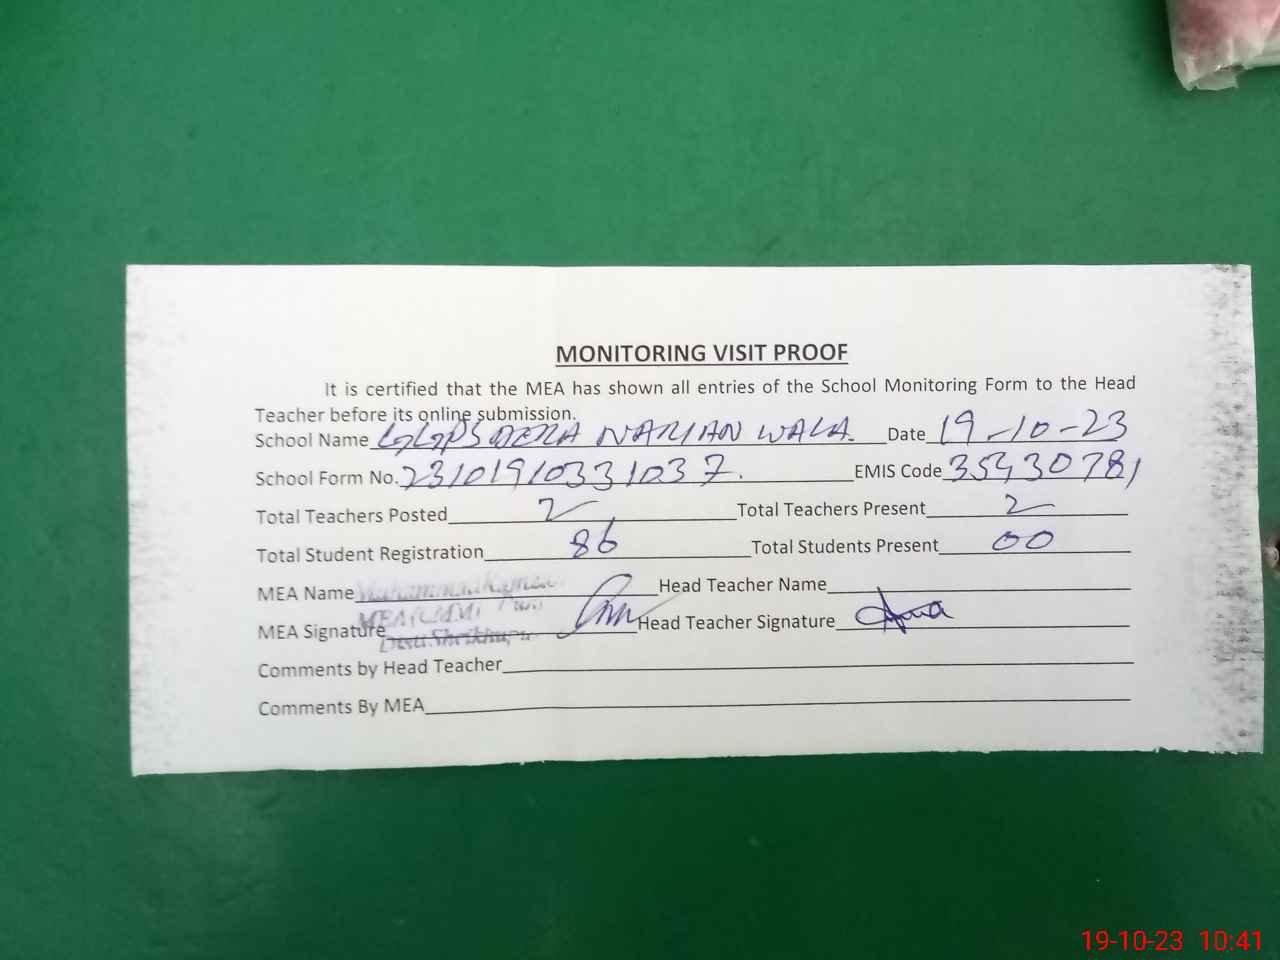 MONITORING VISIT PROOF
It is certified that the MEA has shown all entries of the School Monitoring Form to the Head
Teacher before its online submission.
School Name GGPS DERA NARIAN WALA. Date 19-10-23
School Form No. 23101910331037. EMIS Code 35430781
Total Teachers Posted 2 Total Teachers Present 2
Total Student Registration 86 Total Students Present 00
MEA Name Muhammad Head Teacher Name
MEA Signature Head Teacher Signature
Comments by Head Teacher
Comments By MEA
19-10-23 10:41